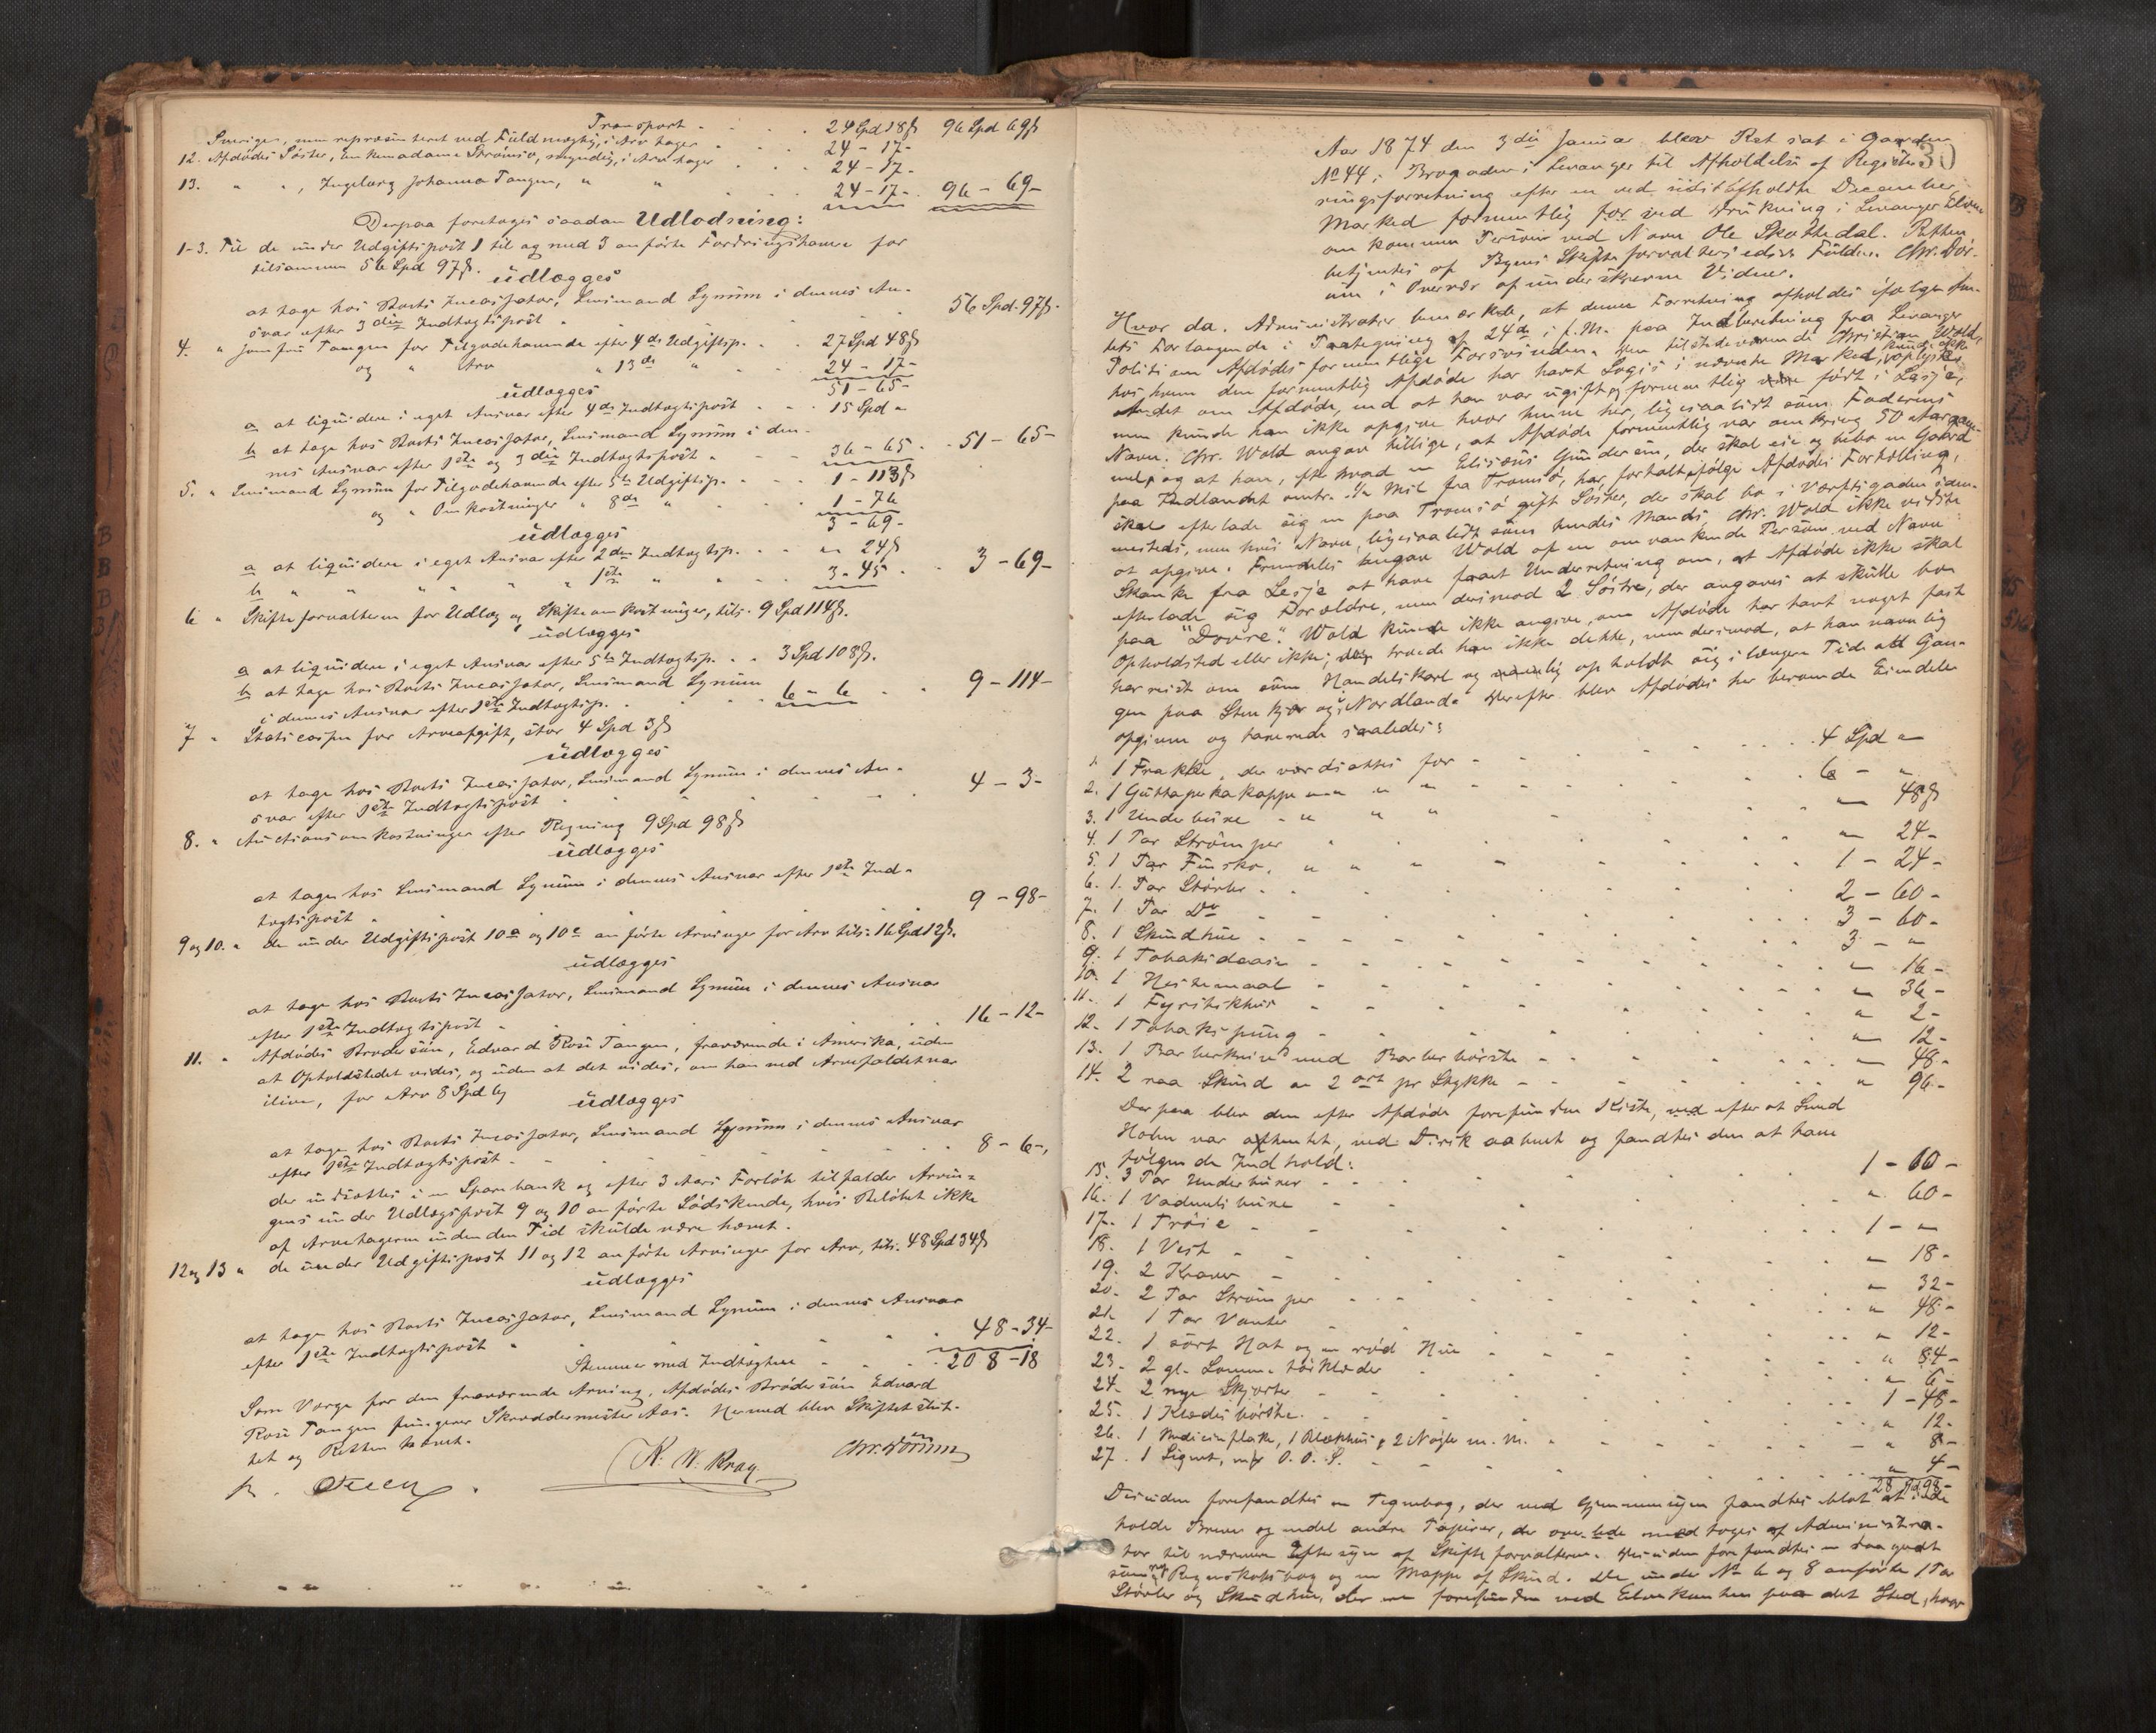 Transport - 24 Spd 18ß 96 Spd 69ß
Sverige, men repræsenteret ved Fuldmægtig, i Arv tager 24 - 17-
12. Afdødes Søster, Enkemadame Strømsø, myndig, i Arv tager 24 - 17-
13. " ", Ingeborg Johanna Tangen, " " 24 - 17- 96 - 69-
Derpaa foretoges saadan Udlodning:
1-3. Til de under Udgiftspost 1 til og med 3 anførte Fordringshavere for
tilsammen 56 Spd 97ß.
udlægges
at tage hos Boets Incassator, Lensmand Lynum i dennes An-
svar efter 3die Indtægtspost 56 Spd. 97ß.
4. " Jomfru Tangen for Tilgodehavende efter 4de Udgiftsp. 27 Spd 48ß
og " Arv " 13de " 24 - 17-
51 - 65-
udlægges
a at liquidere i eget Ansvar efter 4de Indtægtspost 15 Spd "
b at tage hos Boets Incassator, Lensmand Lynum i den-
nes Ansvar efter 1ste og 3die Indtægtspost 36 - 65 - 51 - 65-
5. " Lensmand Lynum for Tilgodehavende efter 5te Udgiftsp. 1 - 113ß
og " Omkostninger " 8de " 1 - 76
3 - 69-
udlægges
a at liquidere i eget Ansvar efter 2den Indtægtsp. " 24ß
b " " " " " 1ste " 3 - 45 3 - 69-
6 " Skifteforvalteren for Udlæg og Skifteomkostninger, tils. 9 Spd 114ß.
udlægges
a at liquidere i eget Ansvar efter 5te Indtægtsp. 3 Spd 108ß.
b at tage hos Boets Incassator, Lensmand Lynum
i dennes Ansvar efter 1ste Indtægtsp. 6 - 6 9 - 114-
7 " Statscassen for Arveafgift, stor 4 Spd 3ß
udlægges
at tage hos Boets Incassator, Lensmand Lynum i dennes An-
svar efter 1ste Indtægtspost 4 - 3-
8. " Auctionsomkostninger efter Regning 9 Spd 98ß
udlægges
at tage hos Lensmand Lynum i dennes Ansvar efter 1ste Ind-
tægtspost 9 - 98-
9 og 10. " de under Udgiftspost 10a og 10c anførte Arvinger for Arv tils: 16 Spd 12ß.
udlægges
at tage hos Boets Incassator, Lensmand Lynum i dennes Ansvar
efter 1ste Indtægtspost 16 - 12-
11. " Afdødes Brodersøn, Edvard Rosi Tangen, fraværende i Amerika, uden
at Opholdstedet vides, og uden at det vides, om han ved Arvefaldet var
ilive, for Arv 8 Spd 6ß
udlægges
at tage hos Boets Incassator, Lensmand Lynum i dennes Ansvar
efter 1ste Indtægtspost 8 - 6-,
der indsættes i en Sparebank og efter 3 Aars Forløb tilfalder Arvin-
gens under Udlægspost 9 og 10 anførte Sødskende, hvis Beløbet ikke
af Arvetageren inden den Tid skulde være hævet.
12 og 13 " de under Udgiftspost 11 og 12 anførte Arvinger for Arv, tils. 48 Spd 34ß
udlægges
at tage hos Boets Incassator, Lensmand Lynum i dennes Ansvar
efter 1ste Indtægtspost 48 - 34-
Stemmer med Indtægtene 208 - 18
Som Værge for den fraværende Arving, Afdødes Brodersøn Edvard
Rosi Tangen fungerer Skræddermester Aas. Hermed blev Skiftet slut-
tet og Retten hævet.
K. W. Kray Chr. Dørum
30
Aar 1874 den 3die Januar blev Ret sat i Gaarden
No 44 i Brogaden i Levanger til Afholdelse af Registe-
ringsforretning efter en ved sidstafholdte December
Marked formentlig før ved Drukning i Levanger Elven
omkommen Person ved Navn Ole Skottedal. Retten
betjentes af Byens Skifteforvalters edsv. Fuldm. Chr. Dør-
um i Overvær af underskrevne Vidner.
Hvor da. Administrator bemærkede, at denne Forretning afholdes ifølge Am-
tets Forlangende i Paategning af 24de i f.M. paa Indberetning fra Levanger
Politi om Afdødes formentlige Forsvinden. Den tilstedeværende Christian Wold,
hos hvem den formentlig Afdøde har havt Logis i nævnte Marked, kunde ikke oplyse
Andet om Afdøde, end at han var ugift og formentlig født i Lesje,
men kunde han ikke opgive hvor henne her, ligesaalidt som Faderens
Navn. Chr. Wold angav tillige, at Afdøde formentlig var omkring 50 Aar gam-
mel, og at han, efter hvad en Elisæus Gundersen, der skal eie og bebo en Gaard
paa Indlandet omtr. 1/2 Mil fra Tromsø, har fortalt ifølge Afdødes Fortælling,
skal efterlade sig en paa Tromsø gift Søster, der skal bo i Værftsgaden sam-
mesteds, men hvis Navn, ligesaalidt som hendes Mands, Chr. Wold ikke vidste
at opgive. Fremdeles angav Wold af en omvankende Person ved Navn
Skanke fra Lesje at have faaet Underretning om, at Afdøde ikke skal
efterlade sig Forældre, men derimod 2 Søstre, der angaves at skulle bo
paa "Dovre". Wold kunde ikke angive, om Afdøde har havt noget fast
Opholdsted eller ikke; troede han ikke dette, men derimod, at han navnlig
har reist om som Handelskarl og opholdt sig i længere Tide ad Gan-
gen paa Stenkjær og i Nordland. Herefter blev Afdødes her beroende Eiendele
opgivne og taxerede saaledes:
1. 1 Frakke, der værdsattes for 4 Spd "
2. 1 Guttaperkakappe " " " 6 - "
3. 1 Underbuxe " " " " 48ß
4. 1 Par Strømper " 24-
5. 1 Par Finsko, " " 1 - 24-
6. 1 Par Støvler 2 - 60-
7. 1 Par Do 3 - 60-
8. 1 Skindhue 3 - "
9. 1 Tobaksdaase " 16-
10. 1 Hestemaal " 36-
11. 1 Fyrstikhus " 2-
12. 1 Tobakspung " 12-
13. 1 Barberkniv med Barberbørste " 48-
14. 2 raa Skind a 2 ort pr Stykke " 96-
Derpaa blev den efter Afdøde forefundne Kiste, efter at Smed
Holm var afhentet, med Dirik aabnet og fandtes den at have
følgende Indhold:
15. 3 Par Underbuxer 1 - 60-
16. 1 Vadmels buxe " 60-
17. 1 Trøie 1 - "
18. 1 Vest " 18-
19. 2 Kraver " 32-
20. 2 Par Strømper " 48-
21. 1 Par Vanter " 12-
22. 1 sort Hat og en rød Hue " 84-
23. 2 gl. Lommetørklæder " 6-
24. 2 nye Skjorter 1 - 48-
25. 1 Klædesbørste " 12-
26. 1 Medicinflaske, 1 Blækhus, 2 Nøgle m. M. " 8-
27. 1 Signet, mrk O. O. S. " 4-
28 Spd 98-
Desuden forefandtes en Tegnebog, der ved Gjennemsyn fandtes blot at inde-
holde Breve og endel andre Papirer, der medtoges af Administra-
tor til nærmere Eftersyn af Skifteforvalteren. Desuden forefandtes en saagodt
som ny Regnskabsbog og en Mappe af Skind. De under No 6 og 8 anførte 1 Par
Støvler og Skindhue, der ere forefundne ved Elvekanten paa det Sted, hvor